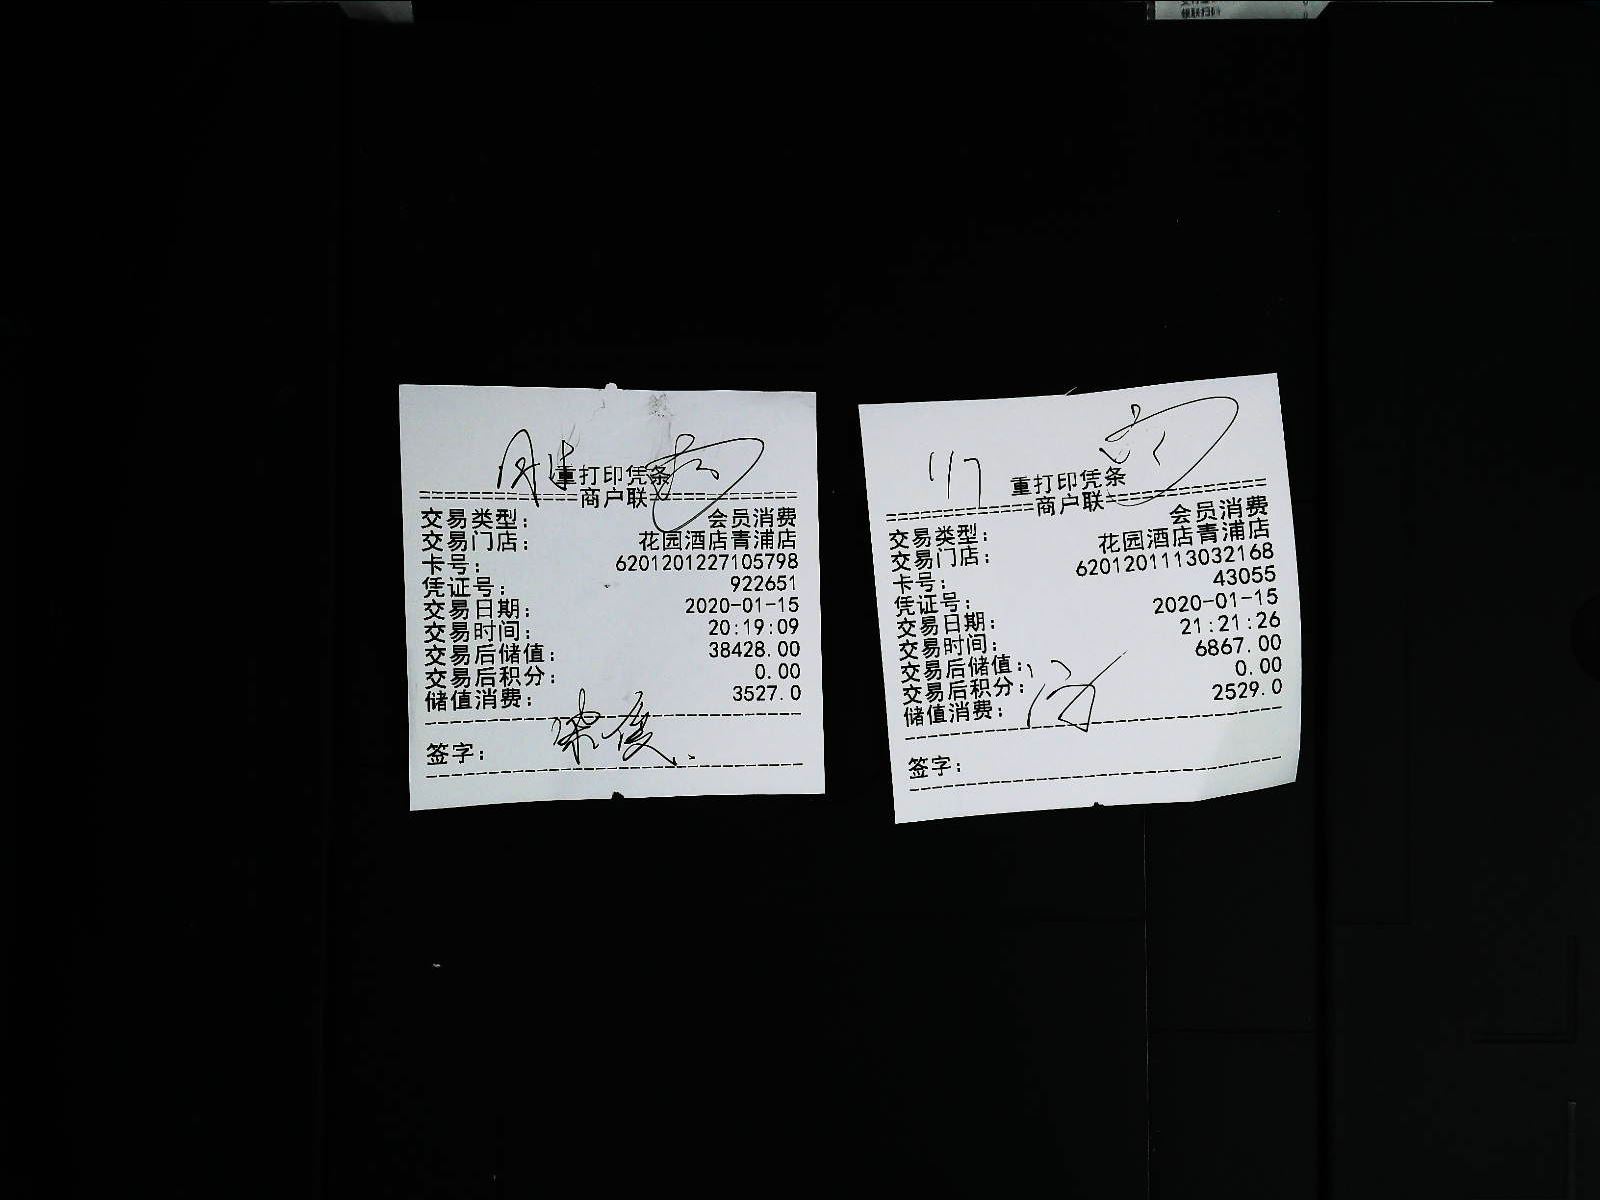 重打印凭条
商户联
交易类型: 会员消费
交易门店: 花园酒店青浦店
卡号: 6201201227105798
凭证号: 922651
交易日期: 2020-01-15
交易时间: 20:19:09
交易后储值: 38428.00
交易后积分: 0.00
储值消费: 3527.0
签字:
重打印凭条
商户联
交易类型: 会员消费
交易门店: 花园酒店青浦店
卡号: 6201201113032168
凭证号: 43055
交易日期: 2020-01-15
交易时间: 21:21:26
交易后储值: 6867.00
交易后积分: 0.00
储值消费: 2529.0
签字: